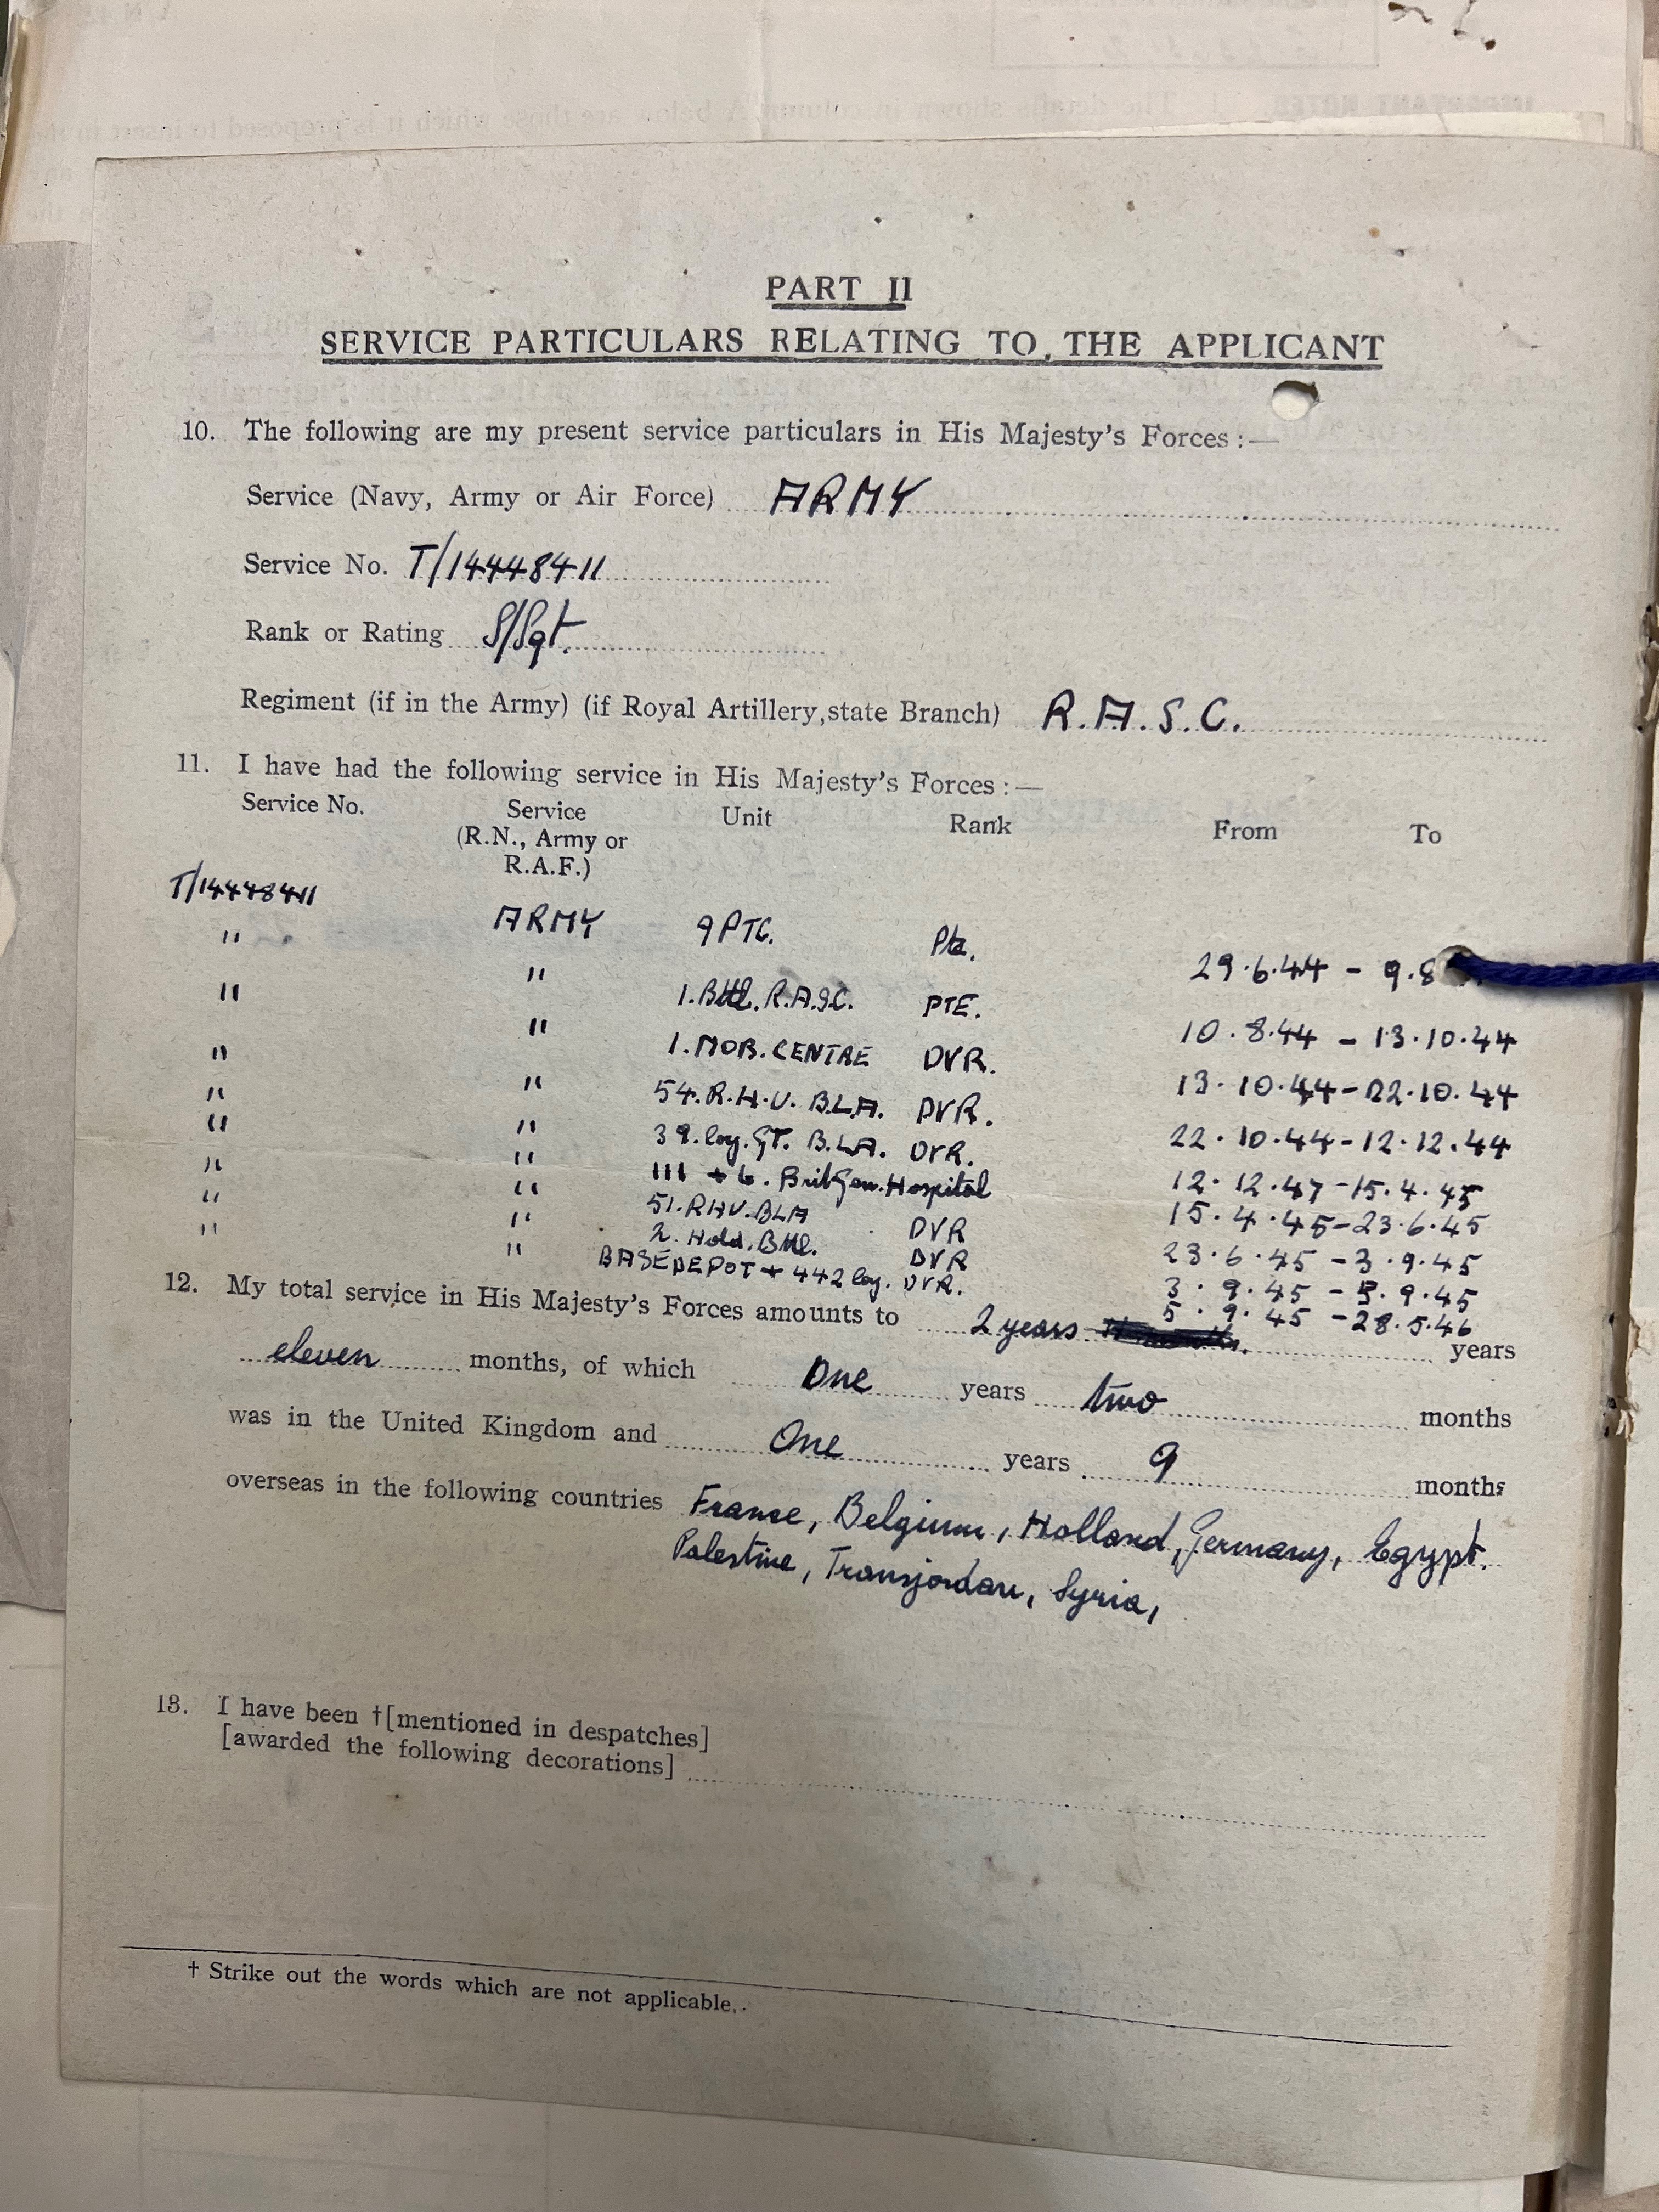 PART II
SERVICE PARTICULARS RELATING TO THE APPLICANT
10. The following are my present service particulars in His Majesty's Forces :—
Service (Navy, Army or Air Force) ARMY
Service No. T/14448411
Rank or Rating S/Sgt.
Regiment (if in the Army) (if Royal Artillery, state Branch) R.A.S.C.
11. I have had the following service in His Majesty's Forces :—
Service No. Service Unit Rank From To
(R.N., Army or
R.A.F.)
T/14448411 ARMY 9 PTC. Pte. 29.6.44 - 9.8
" " 1. Bttl. R.A.S.C. PTE. 10.8.44 - 13.10.44
" " 1. MOB. CENTRE DVR. 13.10.44 - 22.10.44
" " 54. R.H.U. B.L.A. DVR. 22.10.44 - 12.12.44
" " 39. Coy. GT. B.L.A. DVR. 12.12.47 - 15.4.45
" " 111 + 6. Brit Gen. Hospital 15.4.45 - 23.6.45
" " 51. RHU. BLA DVR 23.6.45 - 3.9.45
" " 2. Hold. Bttl. DVR 3.9.45 - 5.9.45
" " BASE DEPOT + 442 Coy. DVR. 5.9.45 - 28.5.46
12. My total service in His Majesty's Forces amounts to 2 years years
eleven months, of which One years two months
was in the United Kingdom and One years 9 months
overseas in the following countries France, Belgium, Holland, Germany, Egypt.
Palestine, Transjordan, Syria,
13. I have been †[mentioned in despatches]
[awarded the following decorations]
† Strike out the words which are not applicable.